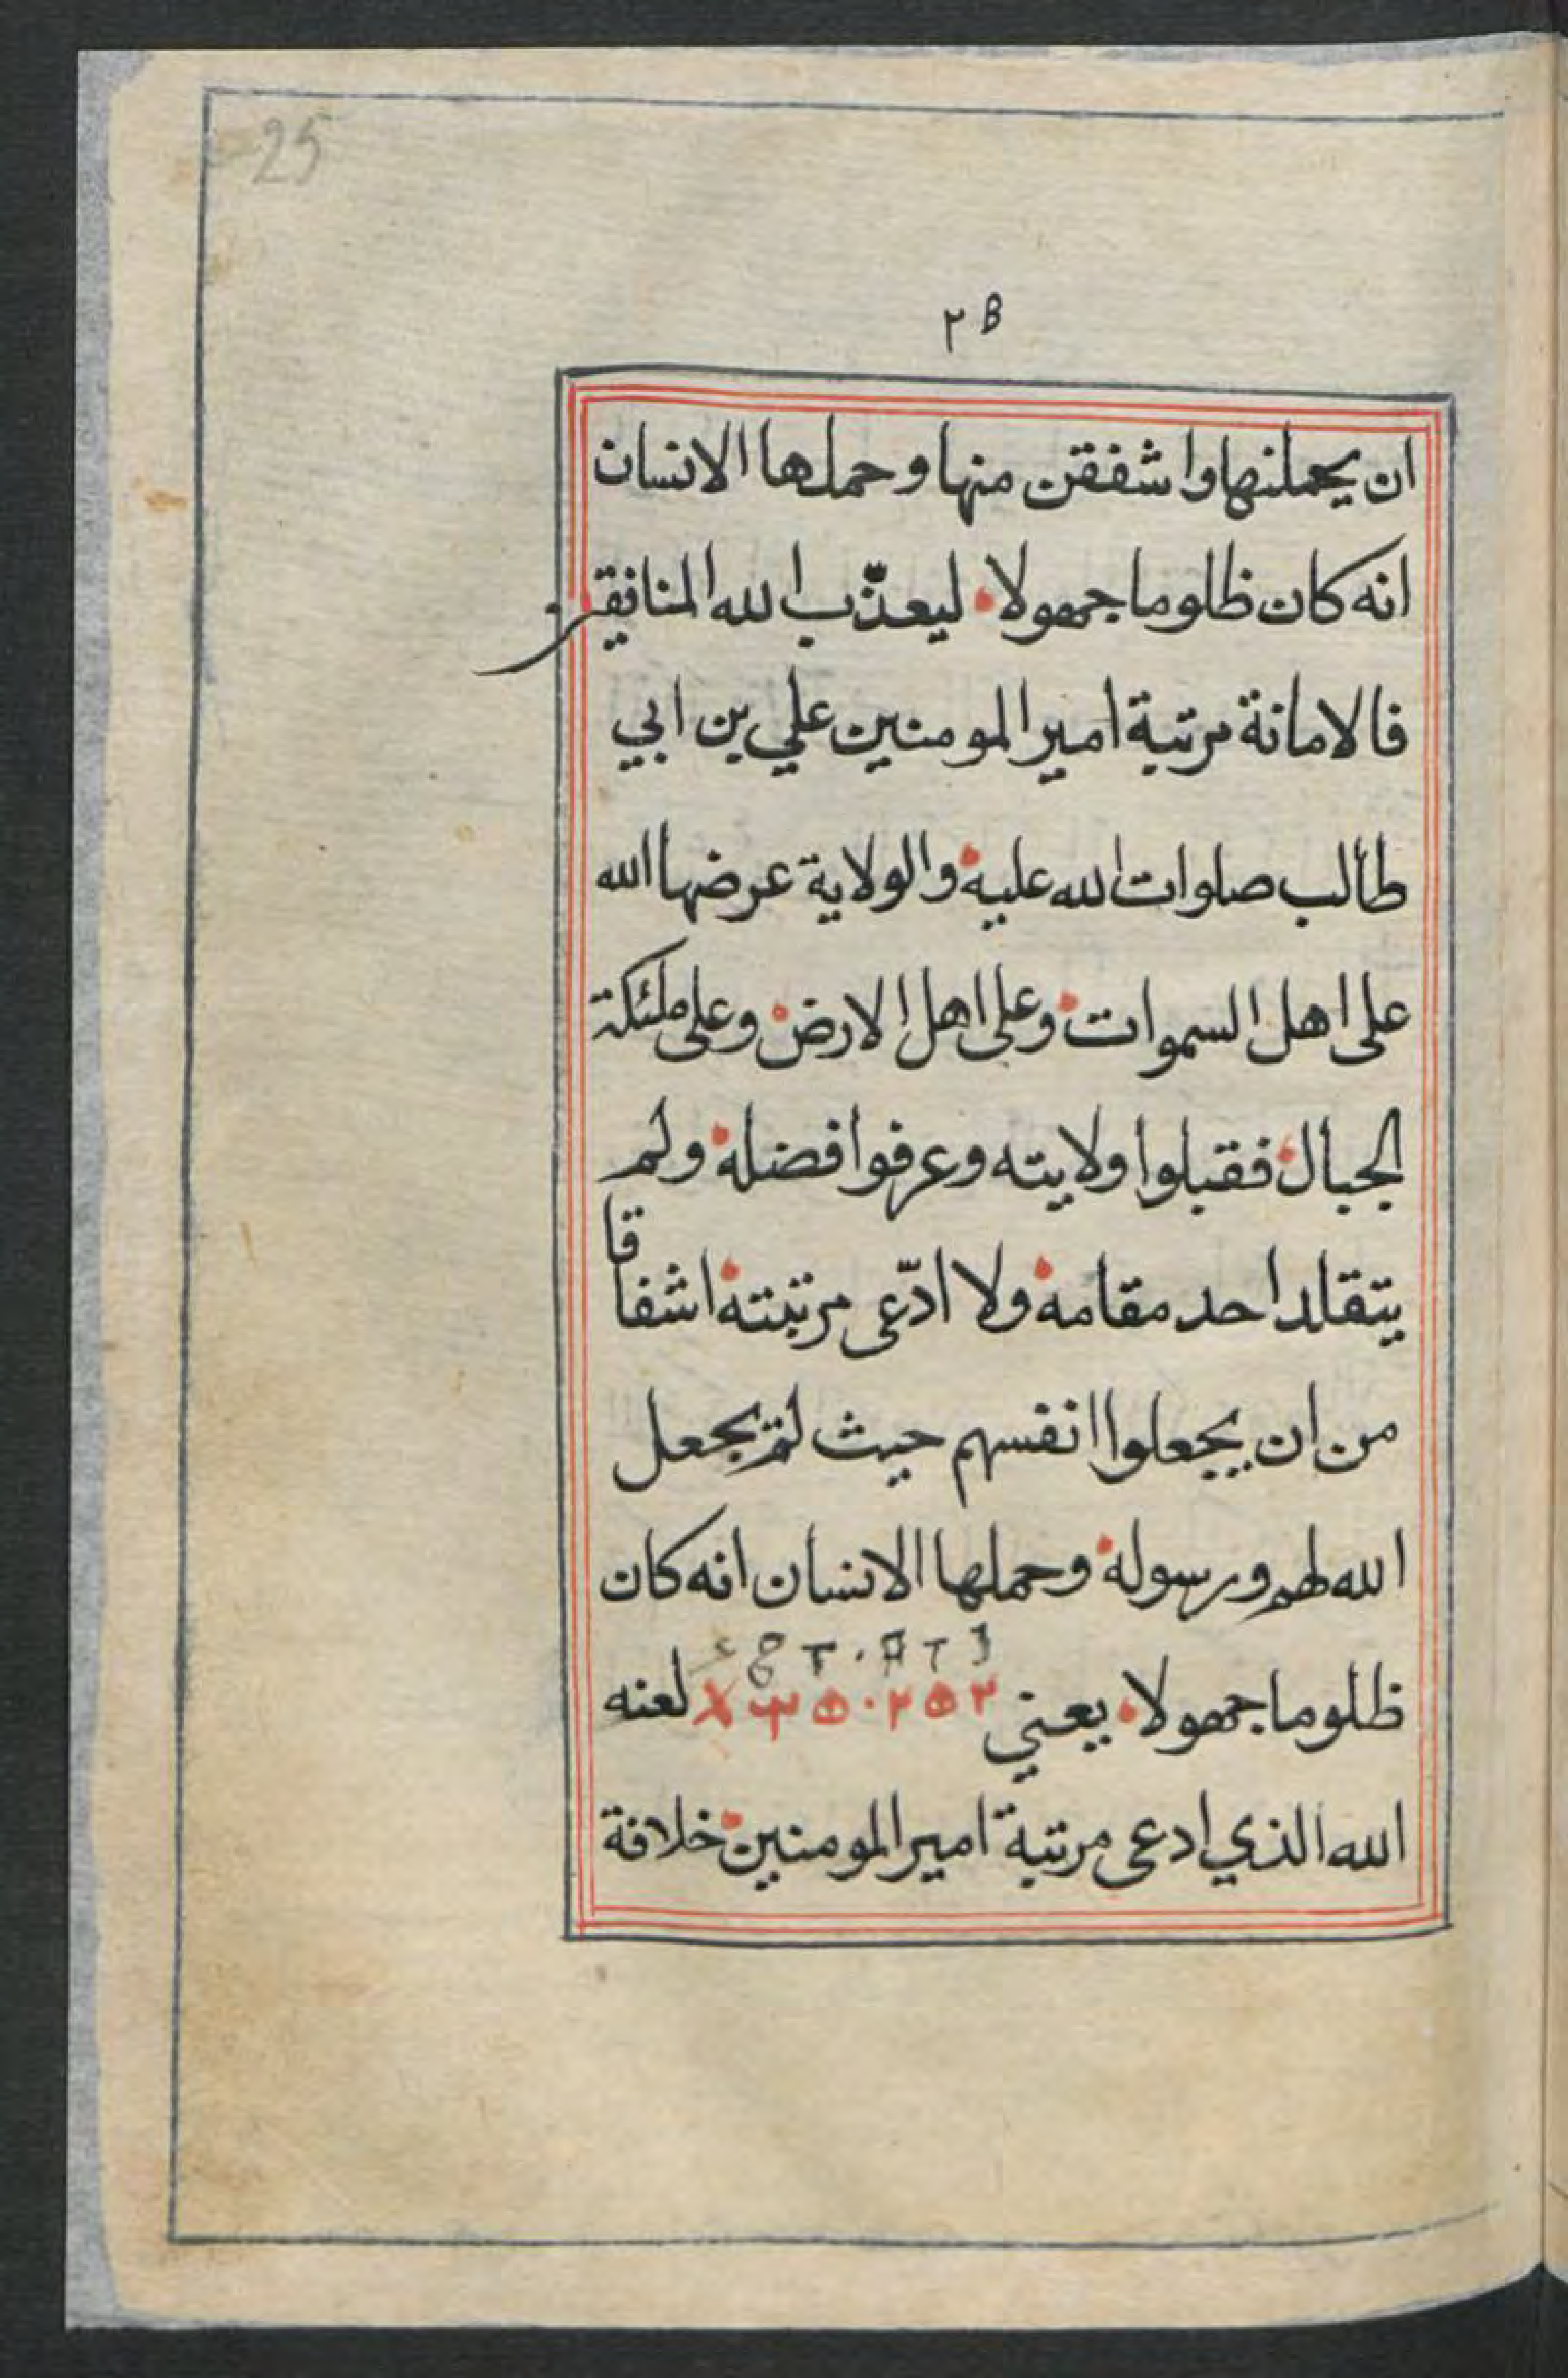 25
٢٥
ان يحملنها واشفقن منها وحملها الانسان
انه كان ظلوما جهولا ليعذّب الله المنافقين
فالامانة مرتبة امير المومنين علي بن ابي
طالب صلوات الله عليه والولاية عرضها الله
على اهل السموات وعلى اهل الارض وعلى ملئكة
الجبال فقبلوا ولايته وعرفوا فضله ولم
يتقلد احد مقامه ولا ادّعى مرتبته اشفاقا
من ان يجعلوا انفسهم حيث لم يجعل
الله لهم ورسوله وحملها الانسان انه كان
ظلوما جهولا يعني لعنه
الله الذي ادعى مرتبة امير المومنين خلافة